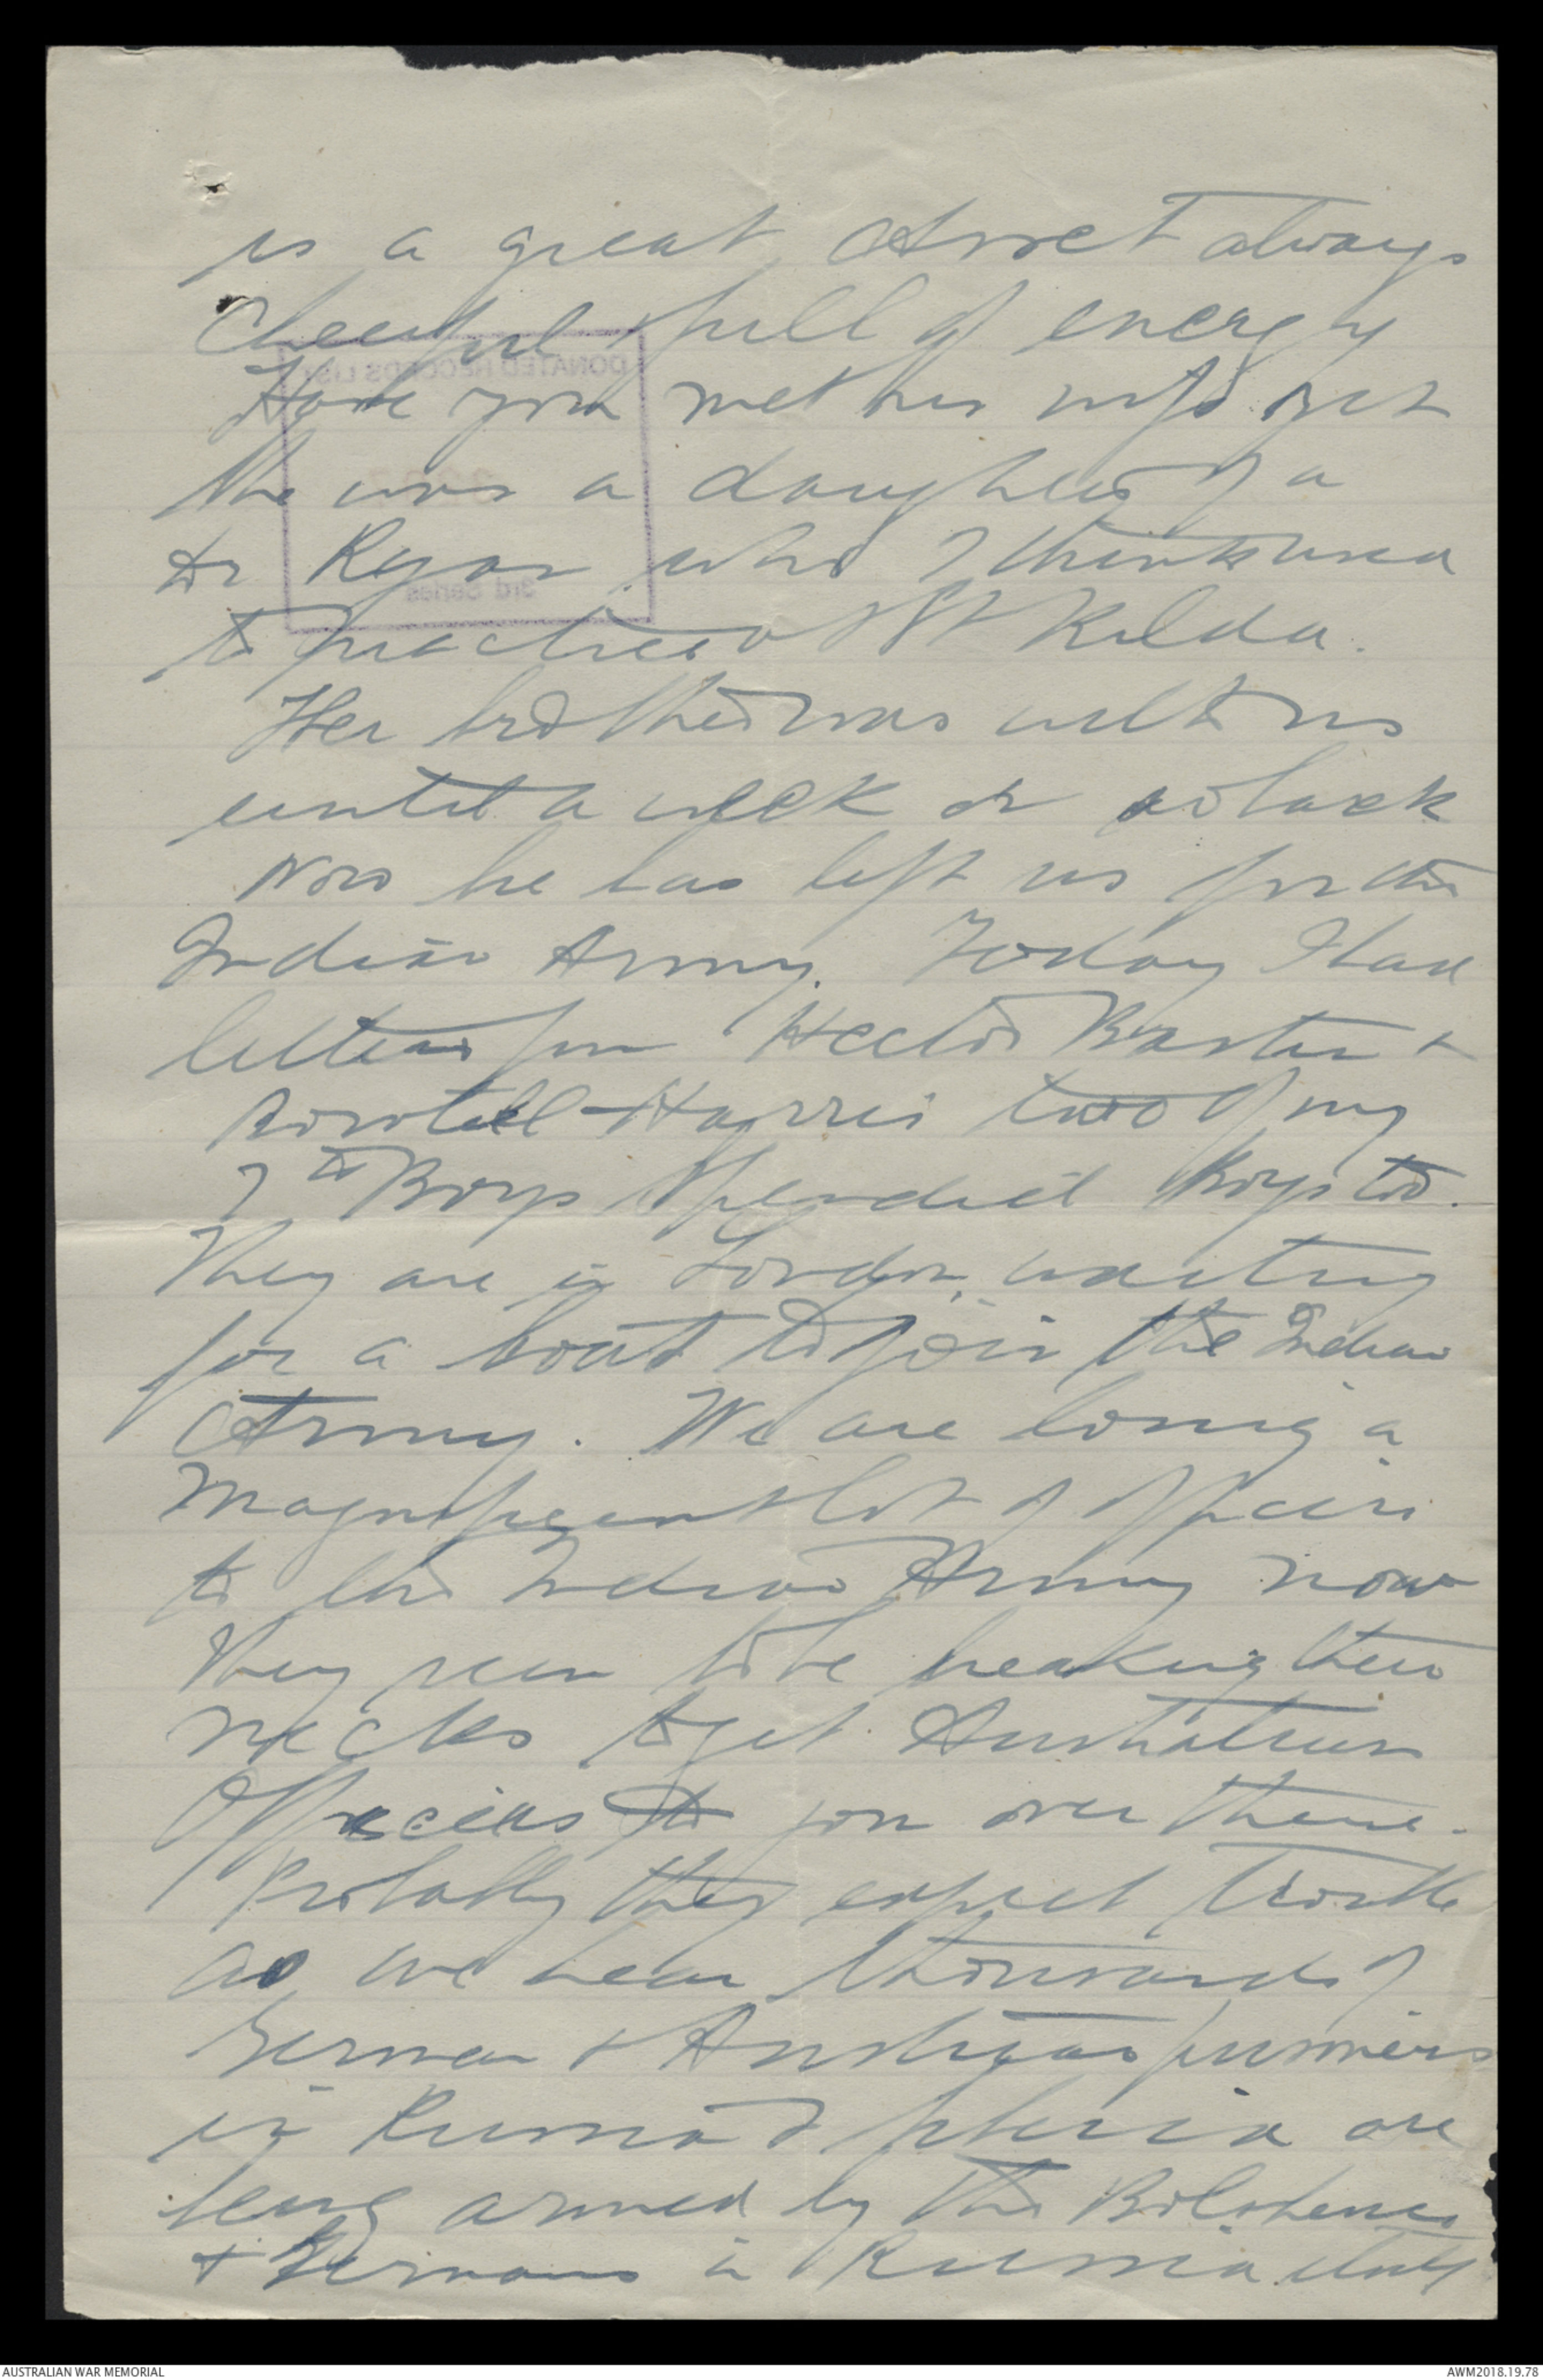 is a great asset always
Cheerful & full of energy
Have you met his wife yet
She was a daughter of a
Dr Ryan who I think used
to practice at St Kilda.
Her brother was with us
until a week or so back
Now he has left us for the
Indian Army. Today I had
letters from Hector &
Harris two of my
7th Boys Splendid Boys too.
They are in London, waiting
for a boat to join the Indian
Army. We are losing a
Magnificent lot of officers
to the Indian Army now
They seem to be breaking their
necks to get Australian
Officers to join over there.
Probably they expect trouble
as we hear thousands of
German & Austrian prisoners
in Russia & Siberia are
being armed by the Bolsheviks
& Germans in Russia.
DONATED RECORDS LIST
3rd Series
AUSTRALIAN WAR MEMORIAL
AWM2018.19.78